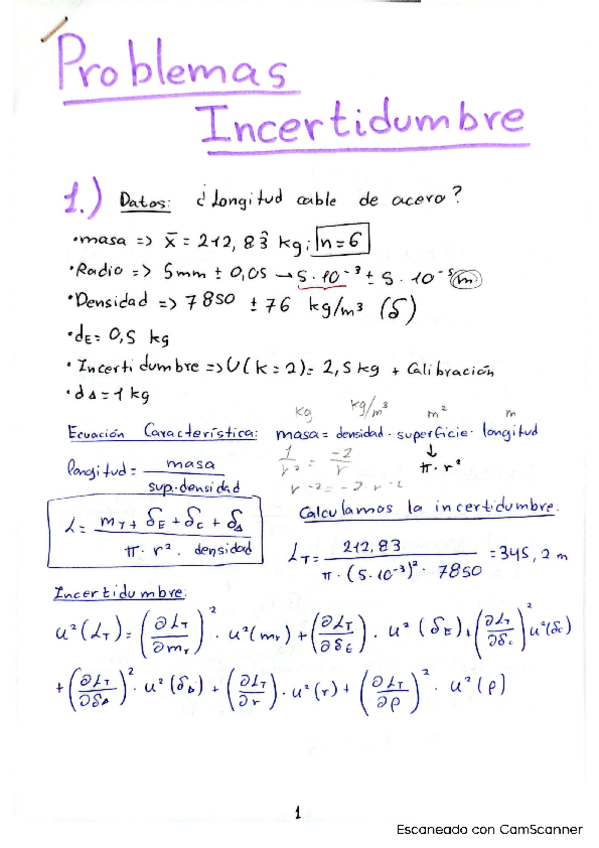 Problemas
Incertidumbre
1.) Datos: ¿Longitud cable de acero?
• masa => x̄ = 212,83̂ kg; n=6
• Radio => 5mm ± 0,05 → 5·10⁻³ ± 5·10⁻⁵ (m)
• Densidad => 7850 ± 76 kg/m³ (δ)
• dE = 0,5 kg
• Incertidumbre => U(k=2) = 2,5 kg + Calibración
• dΔ = 1 kg
kg kg/m³ m² m
Ecuación Característica: masa = densidad · superficie · longitud
1/r² = -2/r ↓
π · r²
longitud = masa / sup·densidad
r⁻² = -2 · r⁻²
Calculamos la incertidumbre.
L = (m_T + δ_E + δ_C + δ_Δ) / (π · r² · densidad)
L_T = 212,83 / (π · (5·10⁻³)² · 7850) = 345,2 m
Incertidumbre:
u²(L_T) = (∂L_T/∂m_T)² · u²(m_T) + (∂L_T/∂δ_E) · u²(δ_E) + (∂L_T/∂δ_C)² u²(δ_C)
+ (∂L_T/∂δ_Δ)² · u²(δ_Δ) + (∂L_T/∂r) · u²(r) + (∂L_T/∂ρ)² · u²(ρ)
1
Escaneado con CamScanner